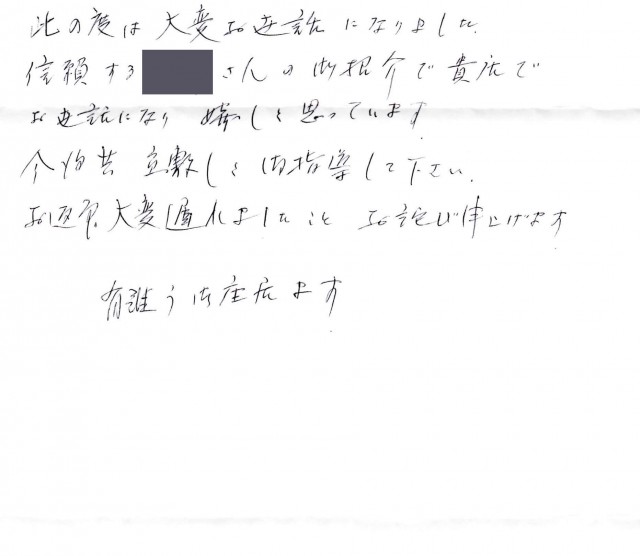 此の度は大変お世話になりました.
信頼する さんの御紹介で貴店で
お世話になり 嬉しく思っています.
今後共 宜敷しく御指導して下さい.
お返事、大変遅れましたこと お詫び申上げます
有難う御座居ます.